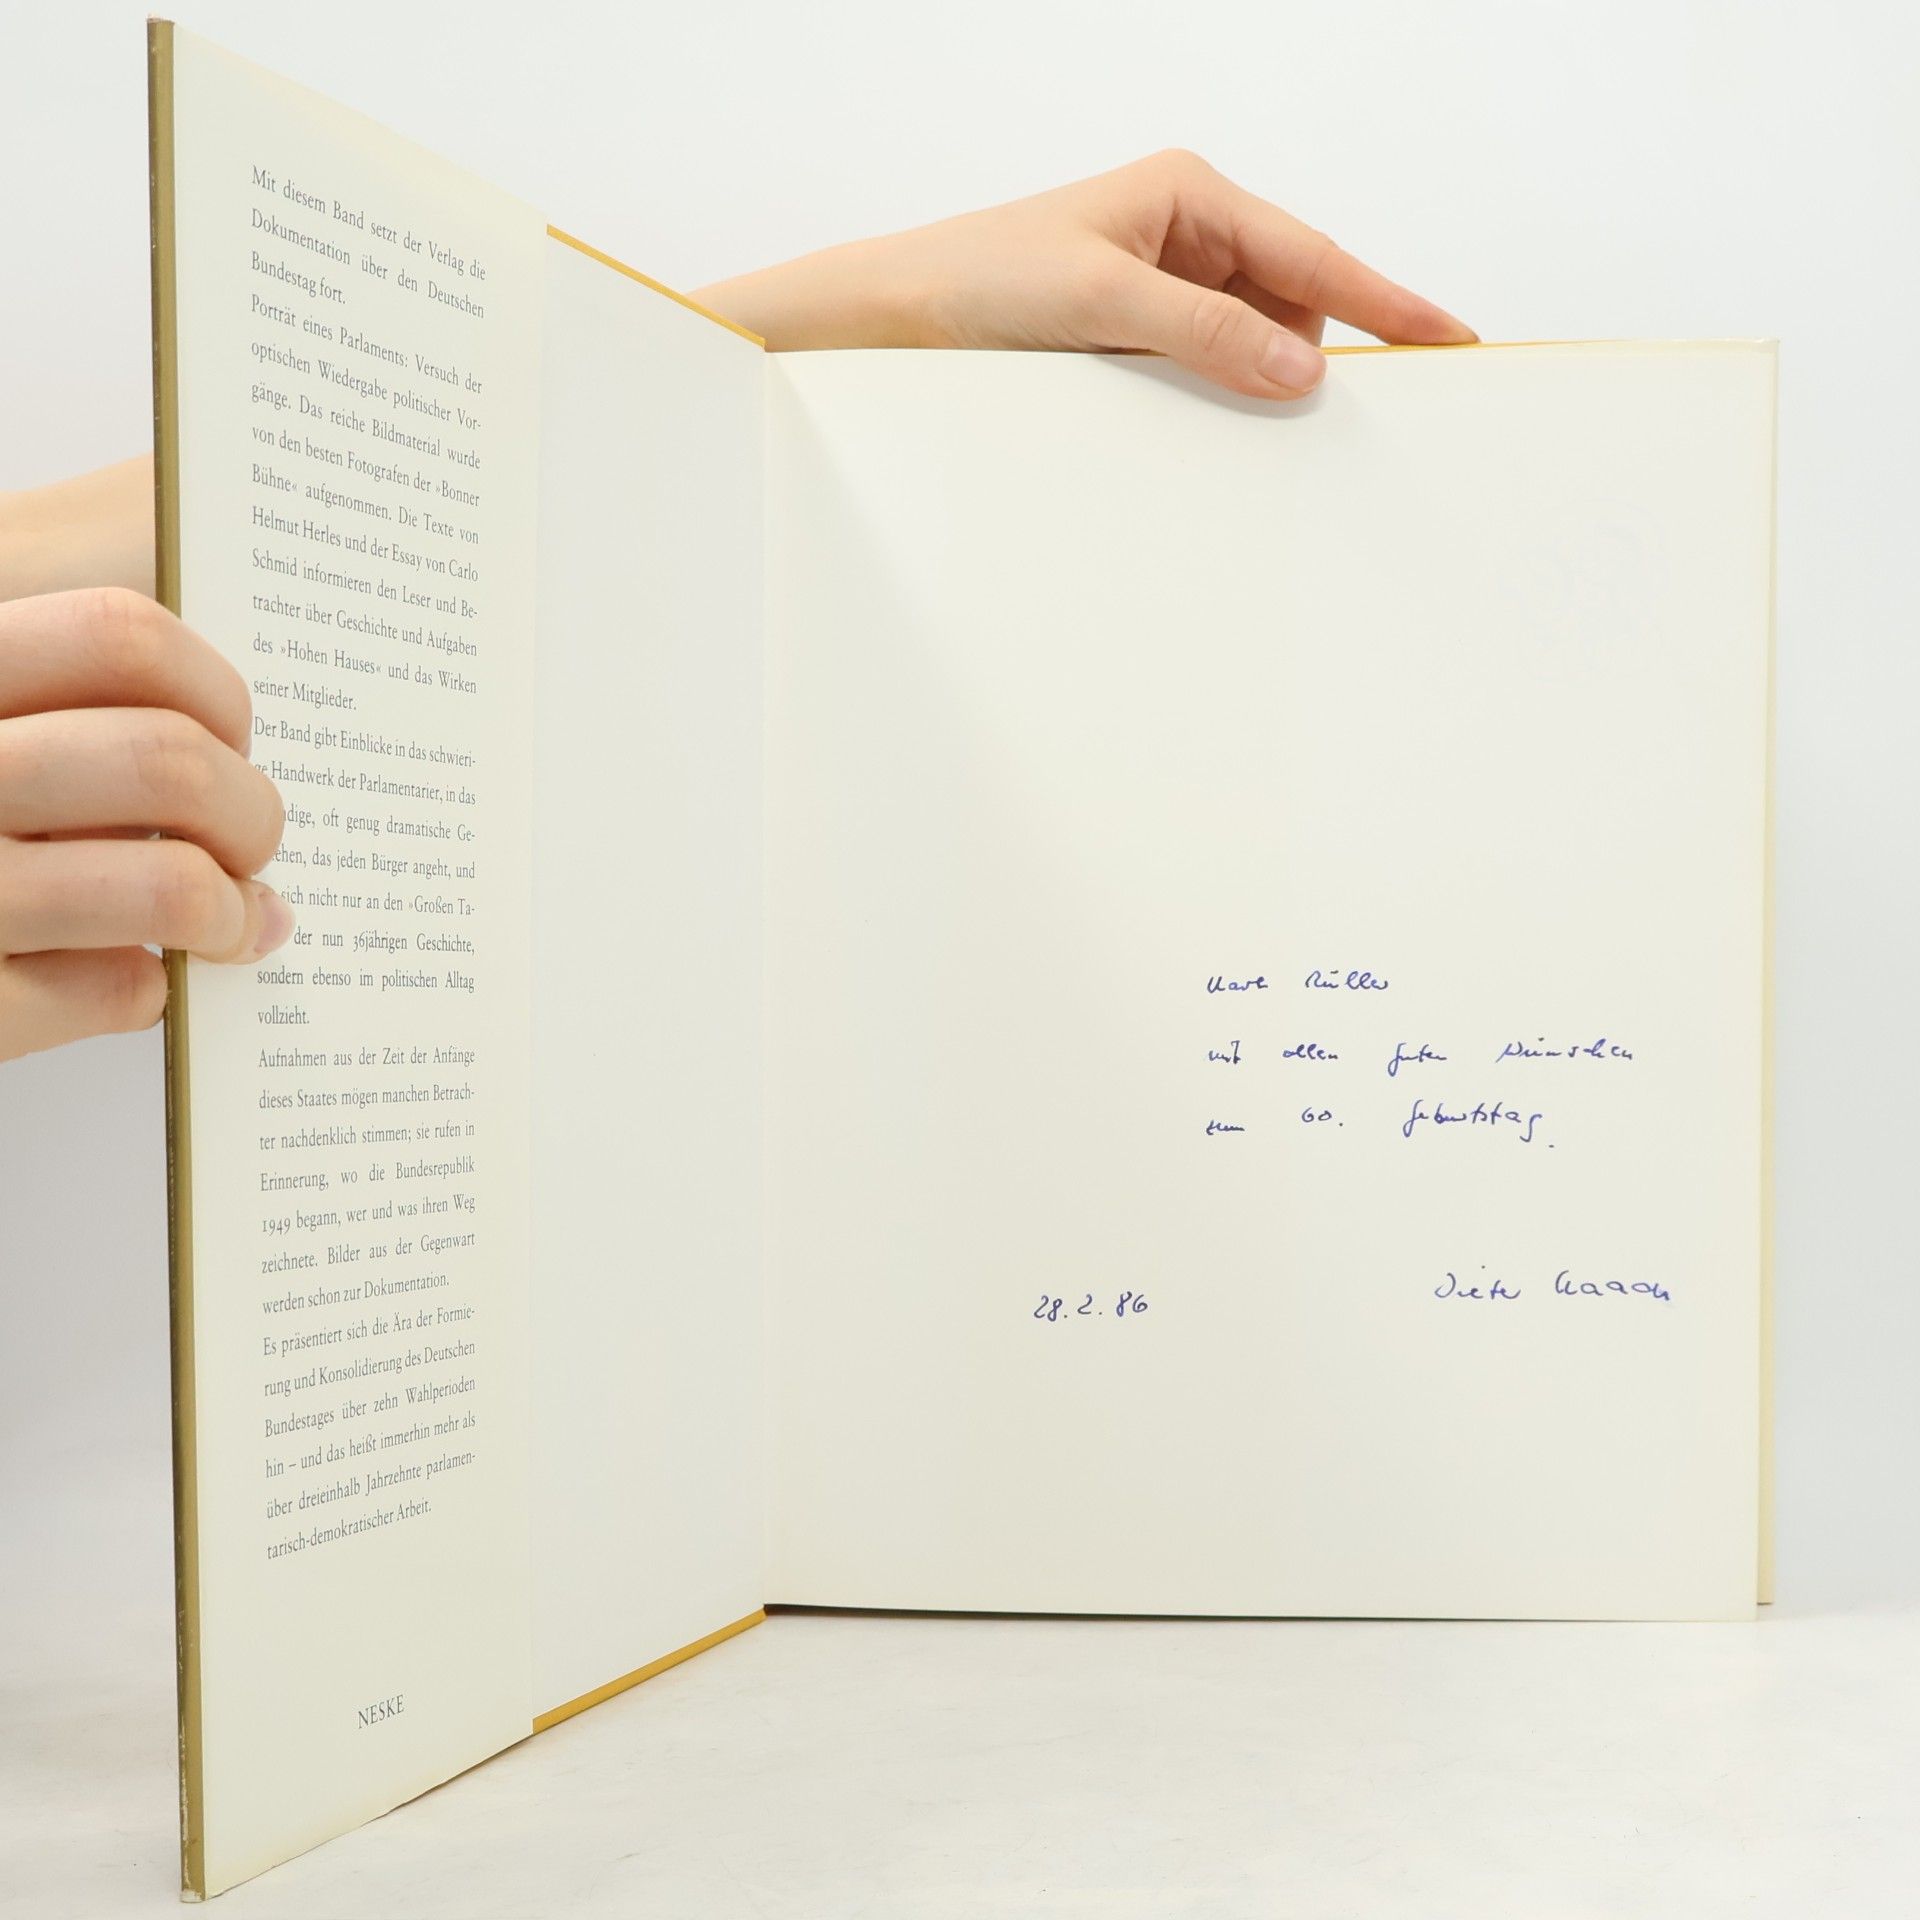 Mit diesem Band setzt der Verlag die
Dokumentation über den Deutschen
Bundestag fort.
Porträt eines Parlaments: Versuch der
optischen Wiedergabe politischer Vor-
gänge. Das reiche Bildmaterial wurde
von den besten Fotografen der »Bonner
Bühne« aufgenommen. Die Texte von
Helmut Herles und der Essay von Carlo
Schmid informieren den Leser und Be-
trachter über Geschichte und Aufgaben
des »Hohen Hauses« und das Wirken
seiner Mitglieder.
Der Band gibt Einblicke in das schwieri-
ge Handwerk der Parlamentarier, in das
oft genug dramatische Ge-
das jeden Bürger angeht, und
sich nicht nur an den »Großen Ta-
der nun 36jährigen Geschichte,
sondern ebenso im politischen Alltag
vollzieht.
Aufnahmen aus der Zeit der Anfänge
dieses Staates mögen manchen Betrach-
ter nachdenklich stimmen; sie rufen in
Erinnerung, wo die Bundesrepublik
1949 begann, wer und was ihren Weg
zeichnete. Bilder aus der Gegenwart
werden schon zur Dokumentation.
Es präsentiert sich die Ära der Formie-
rung und Konsolidierung des Deutschen
Bundestages über zehn Wahlperioden
hin – und das heißt immerhin mehr als
über dreieinhalb Jahrzehnte parlamen-
tarisch-demokratischer Arbeit.
NESKE
Müller
mit allen guten Wünschen
zum 60. Geburtstag.
28.2.86 Dieter